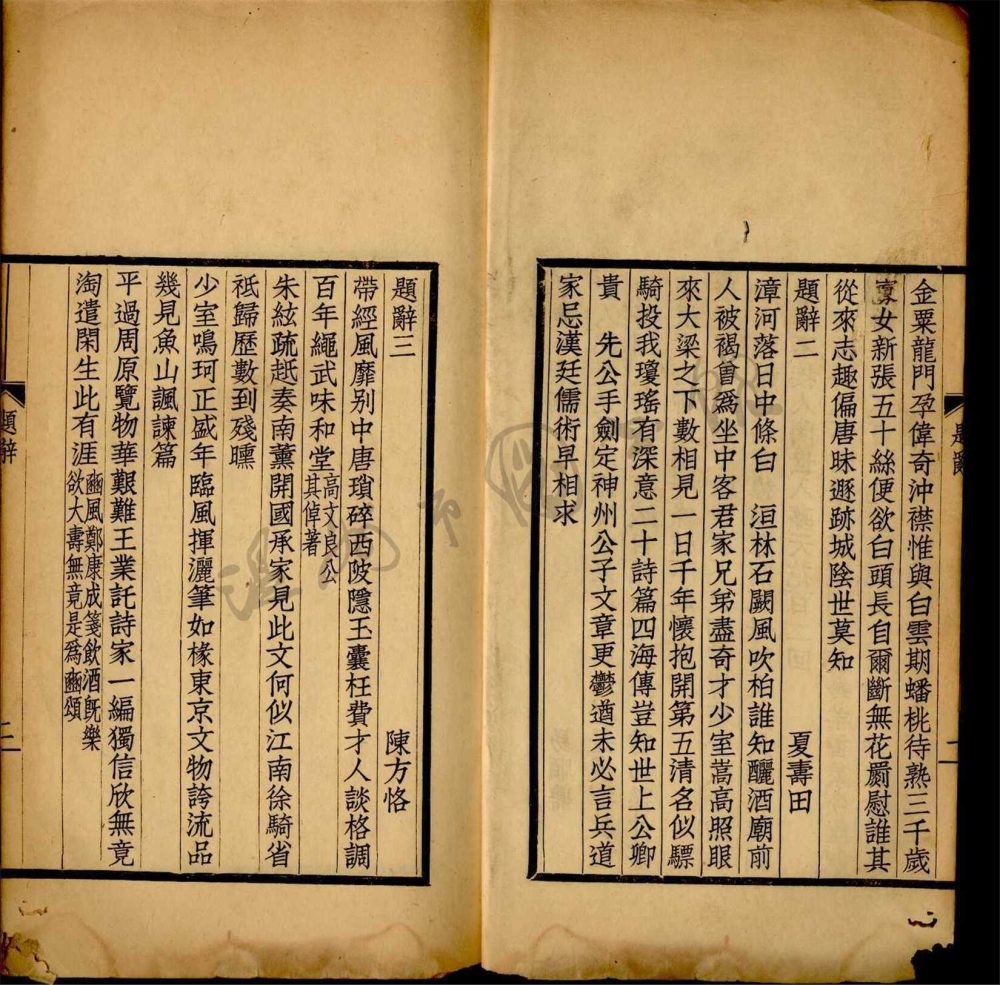 金粟龍門孕偉奇沖襟惟與白雲期蟠桃待熟三千歲
女新張五十絲便欲白頭長自爾斷無花罽慰誰其
從來志趣偏唐昧遯跡城陰世莫知
題辭二
夏壽田
漳河落日中條白　洹林石闕風吹柏誰知釃酒廟前
人被褐曾爲坐中客君家兄弟盡奇才少室嵩高照眼
來大梁之下數相見一日千年懷抱開第五清名似驃
騎投我瓊瑤有深意二十詩篇四海傳豈知世上公卿
貴　先公手劍定神州公子文章更鬱遒未必言兵道
家忌漢廷儒術早相求
題辭
二
題辭三
陳方恪
帶經風靡別中唐瑣碎西陂隱玉囊枉費才人談格調
百年繩武味和堂高文良公其倬著
朱絃疏趆奏南薰開國承家見此文何似江南徐騎省
祇歸歷數到殘曛
少室鳴珂正盛年臨風揮灑筆如椽東京文物誇流品
幾見魚山諷諫篇
平過周原覽物華艱難王業託詩家一編獨信欣無竟
淘遣閑生此有涯豳風鄭康成箋飲酒旣樂欲大壽無竟是爲豳頌
題辭